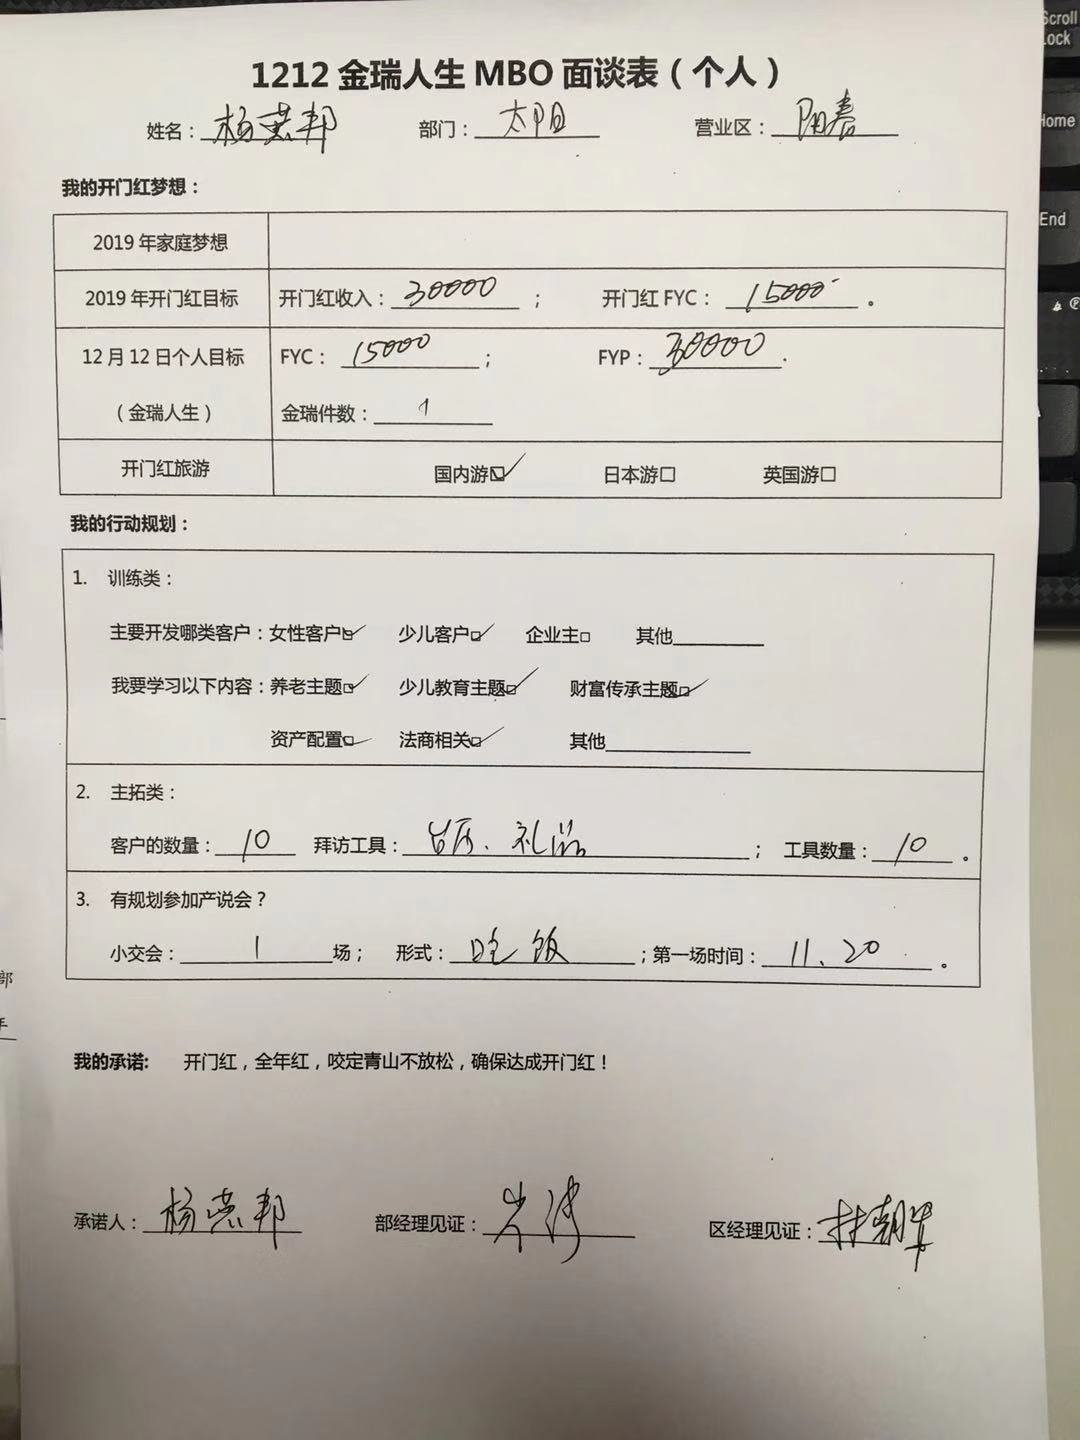 1212金瑞人生MBO面谈表（个人）
姓名：杨 邦 部门：太阳 营业区：阳春
我的开门红梦想：
2019年家庭梦想
2019年开门红目标 开门红收入：30000； 开门红FYC：15000。
12月12日个人目标 FYC：15000； FYP：30000.
（金瑞人生） 金瑞件数：1
开门红旅游 国内游☑ 日本游□ 英国游□
我的行动规划：
1. 训练类：
主要开发哪类客户：女性客户☑ 少儿客户☑ 企业主□ 其他
我要学习以下内容：养老主题☑ 少儿教育主题☑ 财富传承主题☑
资产配置☑ 法商相关☑ 其他
2. 主拓类：
客户的数量：10 拜访工具：台历、礼品； 工具数量：10。
3. 有规划参加产说会？
小交会：1场； 形式：吃饭；第一场时间：11、20。
我的承诺: 开门红，全年红，咬定青山不放松，确保达成开门红！
承诺人：杨 邦 部经理见证：岑 区经理见证：林朝
Scroll
Lock
Home
End
部